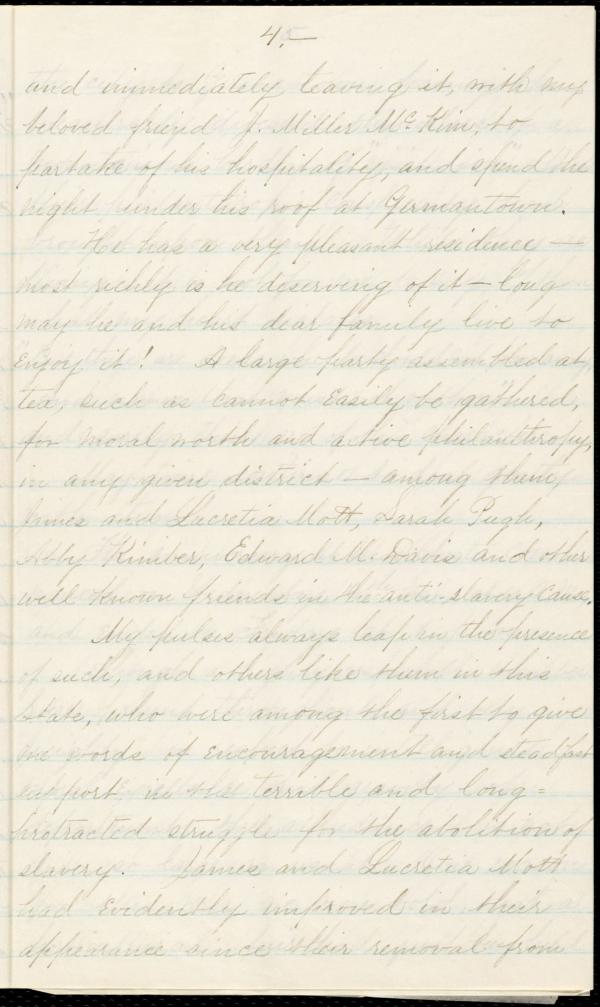 4.—
and immediately leaving it, with my
beloved friend J. Miller McKim, to
partake of his hospitality, and spend the
night under his roof at Germantown.
He has a very pleasant residence —
most richly is he deserving of it — long
may he and his dear family live to
enjoy it! A large party assembled at
tea, such as cannot easily be gathered,
for moral worth and active philanthropy,
in any given district — among them,
James and Lucretia Mott, Sarah Pugh,
Abby Kimber, Edward M. Davis and other
well known friends in the anti-slavery cause.
My pulses always leap in the presence
of such, and others like them in this
State, who were among the first to give
me words of encouragement and steadfast
support in the terrible and long=
protracted struggle for the abolition of
slavery. James and Lucretia Mott
had evidently improved in their
appearance since their removal from